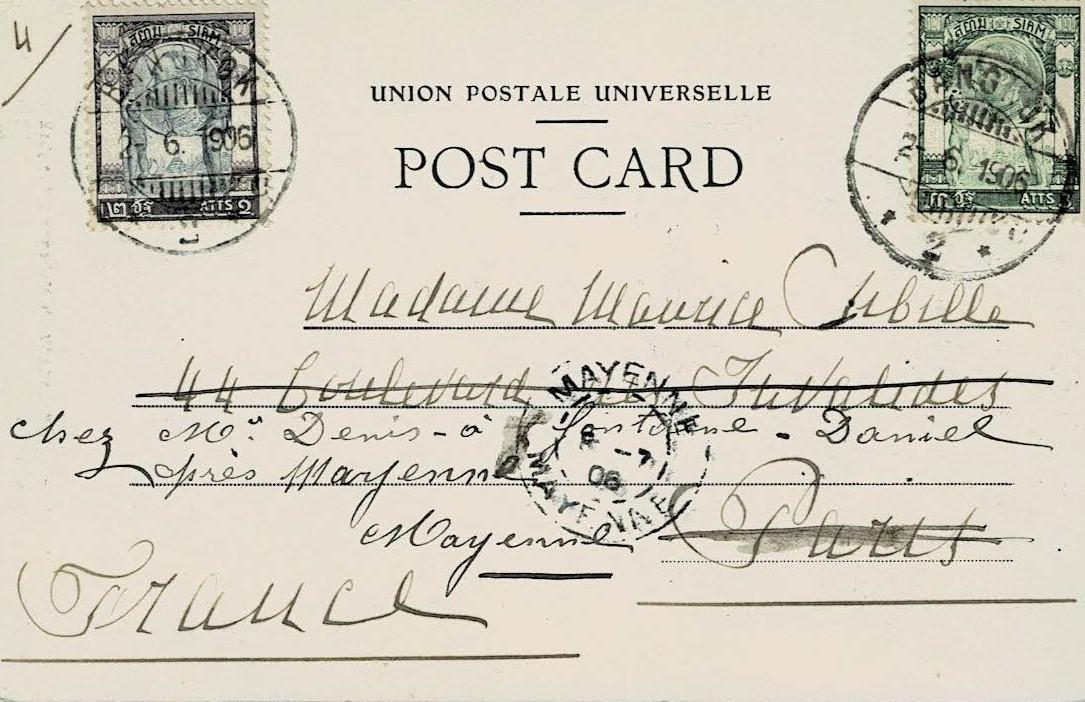 4/
สยาม SIAM
BANGKOK
2. 6. 1906
2
๒ อัฐ ATTS 2
สยาม SIAM
BANGKOK
2. 6. 1906
2
๓ อัฐ ATTS 3
UNION POSTALE UNIVERSELLE
POST CARD
Madame Maurice Cibille
44 Boulevard des Invalides
chez Mr. Denis - à Fontaine - Daniel
près Mayenne
Mayenne
Paris
France
MAYENNE
6 -7
06
MAYENNE